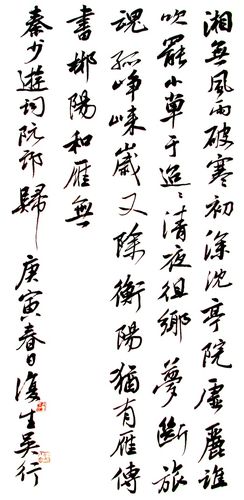 湘無風雨破寒初深沈亭院虛麗誰
吹罷小草于迢々清夜徂鄉夢斷旅
魂孤崢嶸歲又除衡陽猶有雁傳
書郴陽和雁無
秦少遊詞阮郎歸 庚寅春日復生吳行